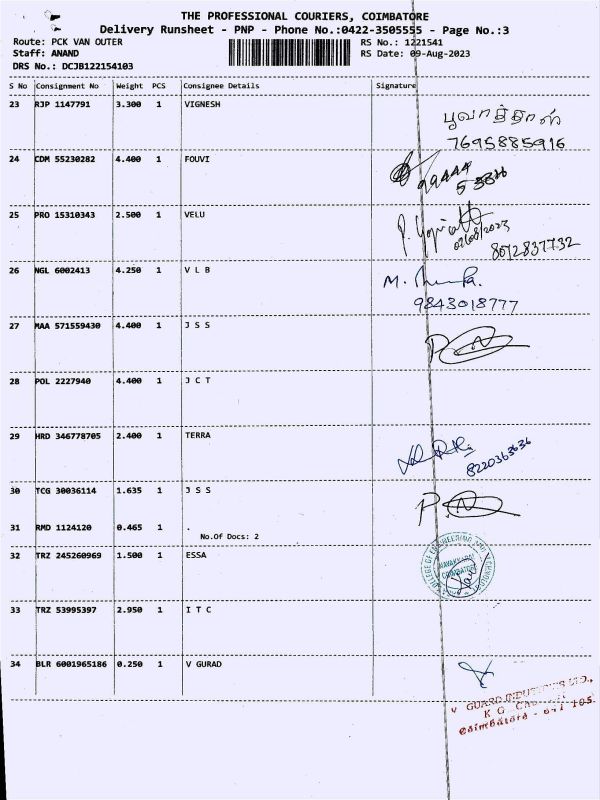 THE PROFESSIONAL COURIERS, COIMBATORE
Delivery Runsheet - PNP - Phone No.:0422-3505555 - Page No.:3
Route: PCK VAN OUTER RS No.: 1221541
Staff: ANAND RS Date: 09-Aug-2023
DRS No.: DCJB122154103
S No Consignment No Weight PCS Consignee Details Signature
23 RJP 1147791 3.300 1 VIGNESH
பூவாத்தாள்
7695885916
24 CDM 55230282 4.400 1 FOUVI
25 PRO 15310343 2.500 1 VELU
8072837732
26 NGL 6002413 4.250 1 V L B M.
9843018777
27 MAA 571559430 4.400 1 J S S
28 POL 2227940 4.400 1 J C T
29 HRD 346778705 2.400 1 TERRA
8220363636
30 TCG 30036114 1.635 1 J S S
31 RMD 1124120 0.465 1 .
No.Of Docs: 2
32 TRZ 245260969 1.500 1 ESSA
COIMBATORE
33 TRZ 53995397 2.950 1 I T C
34 BLR 6001965186 0.250 1 V GURAD
V GUARD INDUSTRIES LTD.,
K G
Coimbatore - 641 105